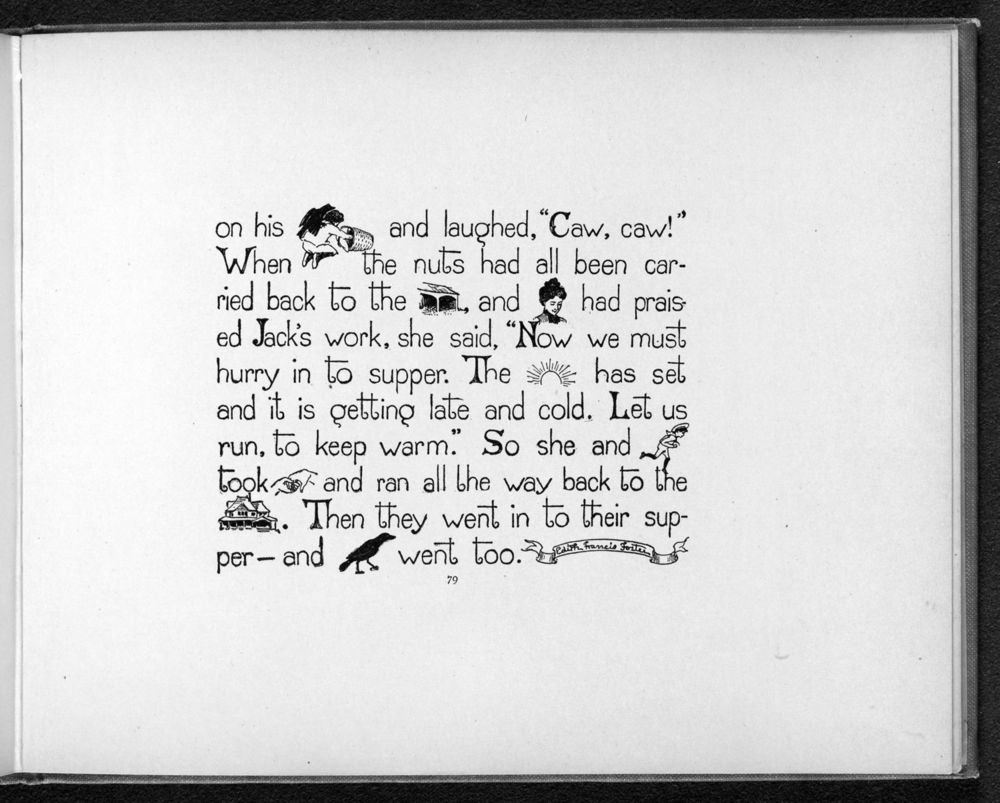 on his and laughed, “Caw, caw!”
When the nuts had all been car-
ried back to the , and had prais-
ed Jack's work, she said, “Now we must
hurry in to supper. The has set
and it is getting late and cold. Let us
run, to keep warm.” So she and
took and ran all the way back to the
. Then they went in to their sup-
per — and went too.
Edith Francis Foster
79